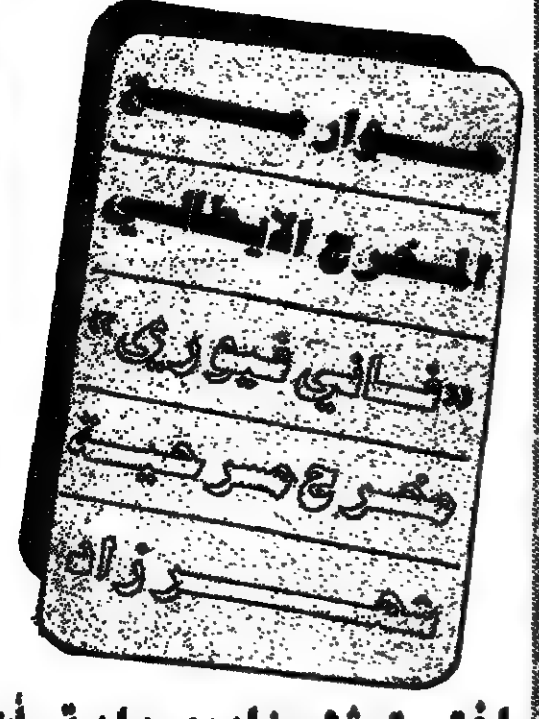 حوار مع
المخرج الايطالي
«فاني فيوري»
مخرج مسرحية
شهرزاد